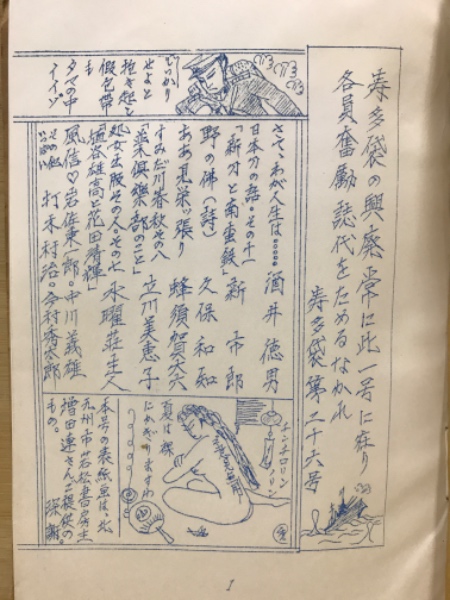 寿多袋の興廃常に此一号に在り
各員奮励誌代をためるなかれ
寿多袋第二十六号
しっかり
せよと
抱き起し
假包帯
も
タマの中
さて、わが人生は…… 酒井徳男
日本刀の話・その十一
「新刀と南蛮鉄」 新市郎
野の佛(詩) 久保和知
ああ見栄っ張り 蜂須賀大六
すみだ川春秋その八
「楽倶楽部のこと」 立川美恵子
処女出版その人その七 水曜荘主人
「植谷雄高と花田清輝」
風信♡岩佐東一郎。中川義雄
その他 打木村治。今村秀太郎
チンチロリン
チンチロリン
夏は裸
にかぎりますわ
本号の表紙画は、北
九州市若松書房主
増田連さんご提供の
もの。 深謝。
1